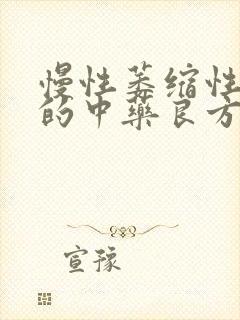 慢性萎缩性
的中药良方
宣豫